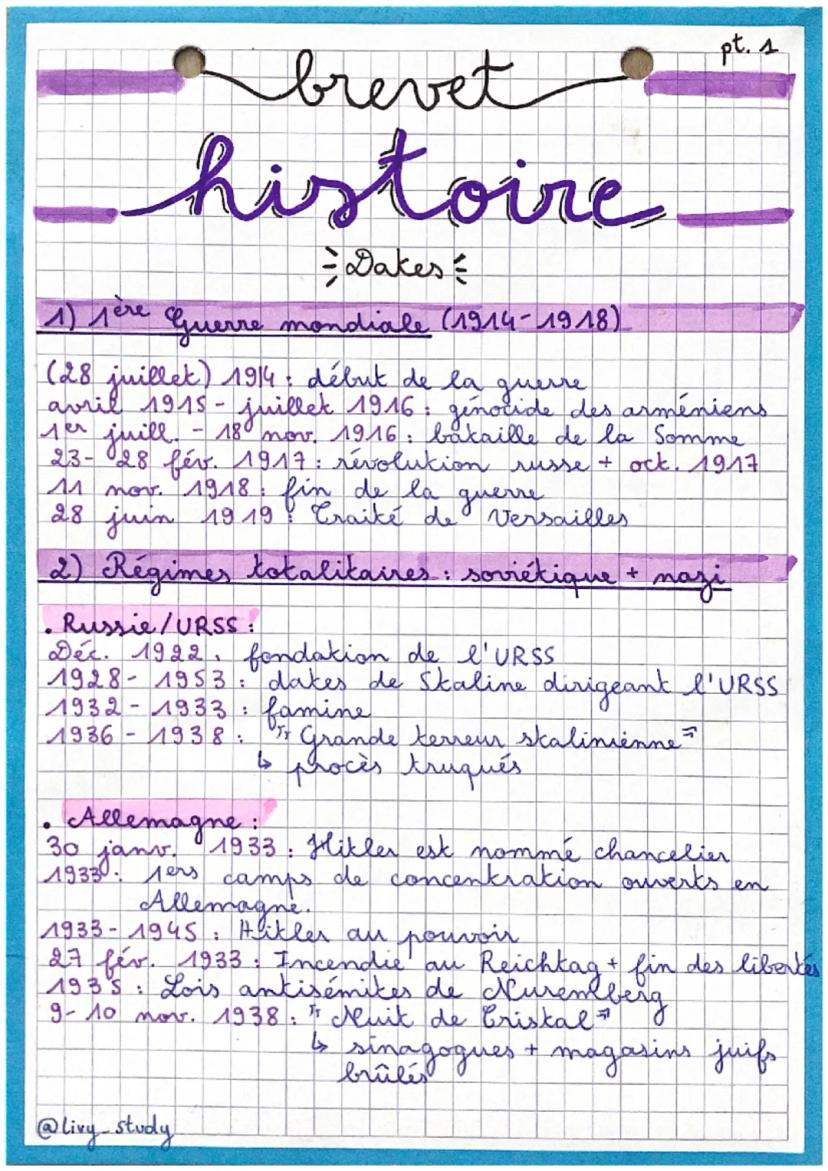 pt. 1
brevet
histoire
Dates
1) 1ère Guerre mondiale (1914-1918)
(28 juillet) 1914 : début de la guerre
avril 1915 - juillet 1916 : génocide des arméniens
1er juill. - 18 nov. 1916 : bataille de la Somme
23- 28 fév. 1917 : révolution russe + oct. 1917
11 nov. 1918 : fin de la guerre
28 juin 1919 : Traité de Versailles
2) Régimes totalitaires : soviétique + nazi
. Russie/URSS :
Déc. 1922 : fondation de l'URSS
1928- 1953 : dates de Staline dirigeant l'URSS
1932 - 1933 : famine
1936 - 1938 : "Grande terreur stalinienne"
↳ procès truqués
. Allemagne :
30 janv. 1933 : Hitler est nommé chancelier
1933 : 1ers camps de concentration ouverts en
Allemagne.
1933- 1945 : Hitler au pouvoir
27 fév. 1933 : Incendie au Reichtag + fin des libertés
1935 : Lois antisémites de Nuremberg
9- 10 nov. 1938 : "Nuit de Cristal"
↳ sinagogues + magasins juifs
brûlés
@livy_study